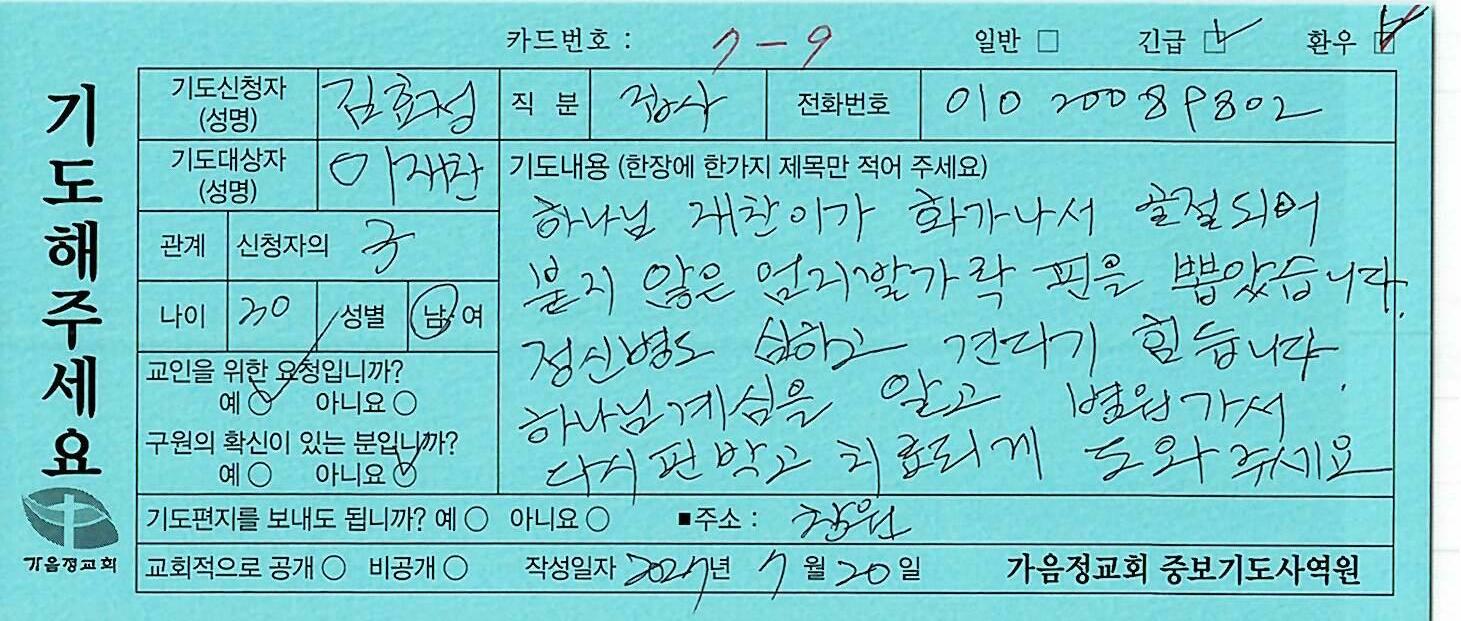 카드번호 : 7-9 일반 □ 긴급 ☑ 환우 ☑
기도해주세요
기도신청자 (성명) 김효정 직 분 집사 전화번호 010 20089802
기도대상자 (성명) 이재찬 기도내용 (한장에 한가지 제목만 적어 주세요)
하나님 재찬이가 화가나서 골절되어
붙지 않은 엄지발가락 핀을 뽑았습니다.
정신병도 심하고 견디기 힘듭니다.
하나님계심을 알고 병원가서
다시 핀박고 치료되게 도와주세요
관계 신청자의 子
나이 30 성별 남·여
교인을 위한 요청입니까?
예 ○ 아니요 ○
구원의 확신이 있는 분입니까?
예 ○ 아니요 ○
기도편지를 보내도 됩니까? 예 ○ 아니요 ○ ■주소 : 창원
교회적으로 공개 ○ 비공개 ○ 작성일자 년 7월 20일 가음정교회 중보기도사역원
가음정교회